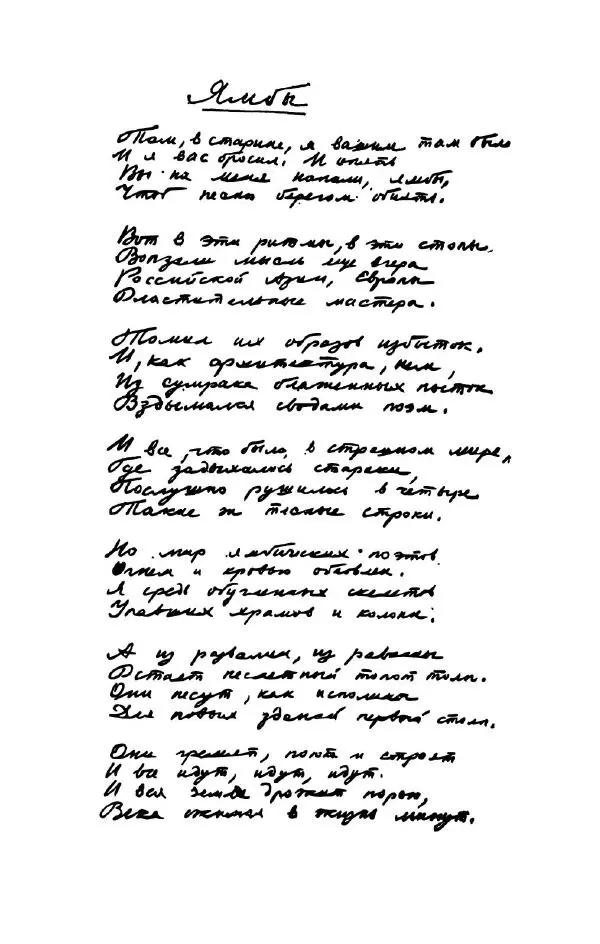 Ямбы
Там, в старине, я вашим там был
И я вас бросил. И опять
Вы на меня напали, ямбы,
Чтоб песнь берегом обнять.
Вот в эти ритмы, в эти стопы
Вонзали мысль еще вчера
Российской Азии, Европы
Властительные мастера.
Томил их образов избыток.
И, как архитектура, нем,
Из сумрака блаженных пыток
Вздымался сводами поэм.
И все, что было в страшном мире,
Где задыхались старики,
Послушно рушилось в четыре
Такие ж тесные строки.
Но мир ямбических поэтов
Огнем и кровью обновлен.
Я средь обугленных скелетов
Упавших храмов и колонн.
А из развалин, из равнины
Встает несметный топот толп.
Они несут, как исполины
Для новых зданий первый столп.
Они гремят, поют и строят
И все идут, идут, идут.
И вся земля дрожит порою,
Века сжимая в жизнь минут.